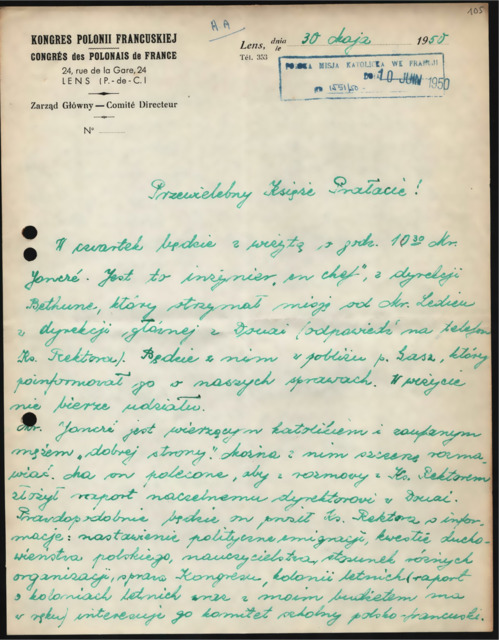 105
AA
KONGRES POLONII FRANCUSKIEJ
CONGRÈS des POLONAIS de FRANCE
24, rue de la Gare, 24
LENS (P.-de-C.)
Zarząd Główny — Comité Directeur
N°
Lens, dnia/le 30 Maja 1950
Tél. 353
POLSKA MISJA KATOLICKA WE FRANCJI
10 JUIN 1950
Przewielebny Księże Prałacie!
W czwartek będzie z wizytą o godz. 10 30 Mr.
Jancré. Jest to inżynier „en chef", z dyrekcji
Béthune, który otrzymał misję od Mr. Ledieu
z dyrekcji głównej z Douai (odpowiedź na telefon
Ks. Rektora). Będzie z nim w pobliżu p. Gasz, który
poinformował go o naszych sprawach. W wizycie
nie bierze udziału.
Mr. Jancré jest wierzącym katolikiem i zaufanym
mężem „dobrej strony". Można z nim szczerze rozma-
wiać. Ma on polecone, aby z rozmowy z Ks. Rektorem
złożył raport naczelnemu dyrektorowi z Douai.
Prawdopodobnie będzie on prosił Ks. Rektora o infor-
macje: nastawienie polityczne emigracji, kwestie ducho-
wieństwa polskiego, nauczycielstwa, stosunek różnych
organizacji, sprawa Kongresu, kolonii letnich (raport
o koloniach letnich wraz z moim budżetem ma
w ręku) interesuje go komitet szkolny polsko-francuski.